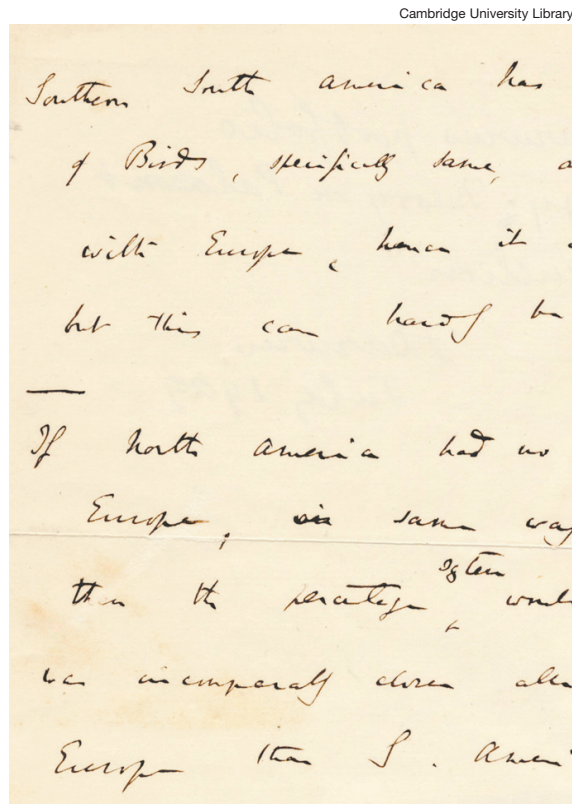 Cambridge University Library
Southern South America has
of Birds, specifically same,
with Europe, hence it
but this can hardly be
If North America had no
Europe, in same way
then the percentage system
was incomparably closer
Europe than S. Amer